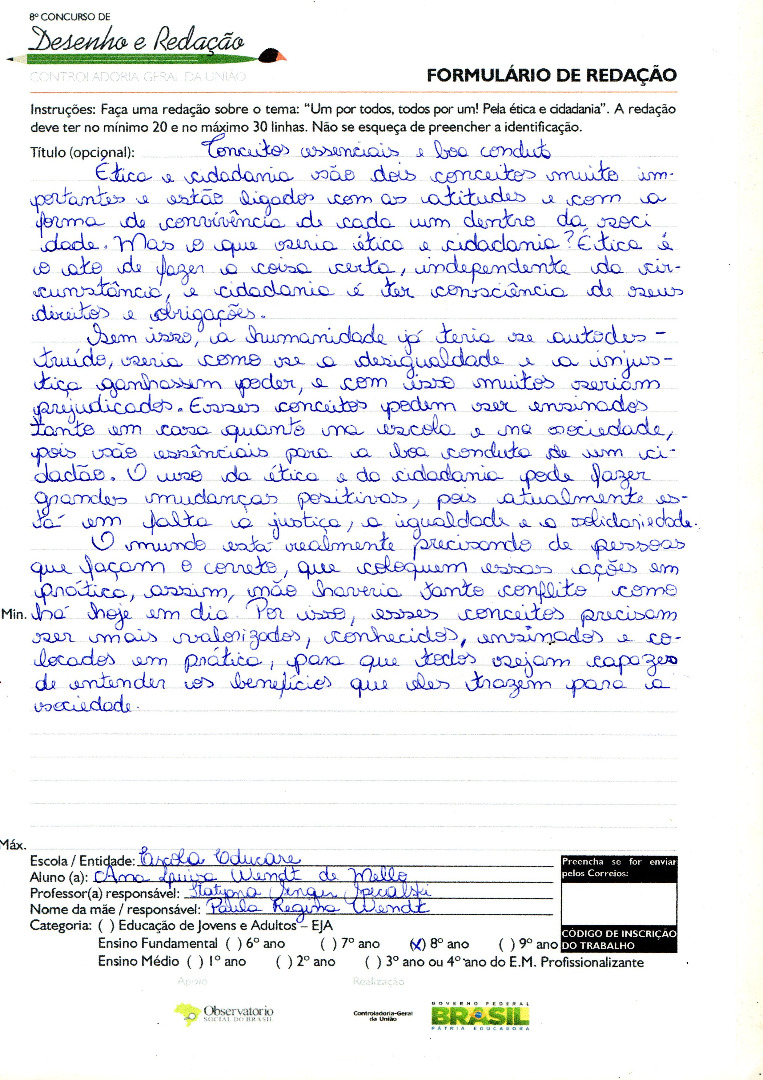 8º CONCURSO DE
Desenho e Redação
CONTROLADORIA GERAL DA UNIÃO
FORMULÁRIO DE REDAÇÃO
Instruções: Faça uma redação sobre o tema: "Um por todos, todos por um! Pela ética e cidadania". A redação
deve ter no mínimo 20 e no máximo 30 linhas. Não se esqueça de preencher a identificação.
Título (opcional): Conceitos essenciais e boa conduta
Ética e cidadania são dois conceitos muito im-
portantes e estão ligados com as atitudes e com a
forma de convivência de cada um dentro da soci
idade. Mas o que seria ética e cidadania? Ética é
o ato de fazer a coisa certa, independente da cir-
cunstância, e cidadania é ter consciência de seus
direitos e obrigações.
Sem isso, a humanidade já teria se autodes-
truído, seria como se a desigualdade e a injus-
tiça ganhassem poder, e com isso muitos seriam
prejudicados. Esses conceitos podem ser ensinados
tanto em casa quanto na escola e na sociedade,
pois são essênciais para a boa conduta de um ci-
dadão. O uso da ética e da cidadania pode fazer
grandes mudanças positivas, pois atualmente es-
tá em falta a justiça, a igualdade e a solidariedade.
O mundo está realmente precisando de pessoas
que façam o correto, que coloquem essas ações em
prática, assim, não haveria tanto conflito como
Min. há hoje em dia. Por isso, esses conceitos precisam
ser mais valorizados, conhecidos, ensinados e co-
locados em prática, para que todos sejam capazes
de entender os benefícios que eles trazem para a
sociedade.
Máx.
Escola / Entidade: Escola Educare
Aluno (a): Ana Luiza Wendt de Mello
Professor(a) responsável: Tatyana
Nome da mãe / responsável: Paula Regina Wendt
Categoria: ( ) Educação de Jovens e Adultos – EJA
Ensino Fundamental ( ) 6º ano ( ) 7º ano (x) 8º ano ( ) 9º ano
Ensino Médio ( ) 1º ano ( ) 2º ano ( ) 3º ano ou 4º ano do E.M. Profissionalizante
Preencha se for enviar
pelos Correios:
CÓDIGO DE INSCRIÇÃO
DO TRABALHO
Apoio Realização
Observatório
SOCIAL DO BRASIL
Controladoria-Geral
da União
GOVERNO FEDERAL
BRASIL
PÁTRIA EDUCADORA